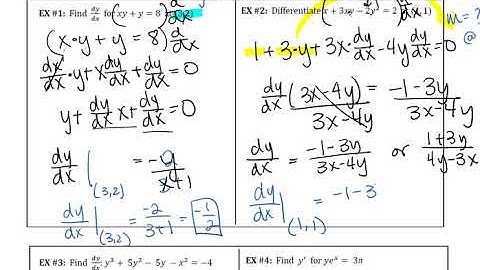 EX #1: Find dy/dx for xy + y = 8
(x·y + y = 8) d/dx
dx/dx·y + x dy/dx + dy/dx = 0
y + dy/dx x + dy/dx = 0
dy/dx | (3,2) = -y/x+1
dy/dx | (3,2) = -2/3+1 = -1/2
EX #2: Differentiate x + 3xy − 2y² = 2
m = ?
@
1 + 3·y + 3x·dy/dx - 4y dy/dx = 0
dy/dx (3x-4y)/3x-4y = -1-3y/3x-4y
dy/dx = -1-3y/3x-4y or 1+3y/4y-3x
dy/dx | (1,1) = -1-3
EX #3: Find dy/dx: y³ + 5y² − 5y − x² = −4
EX #4: Find y′ for yeˣ = 3π